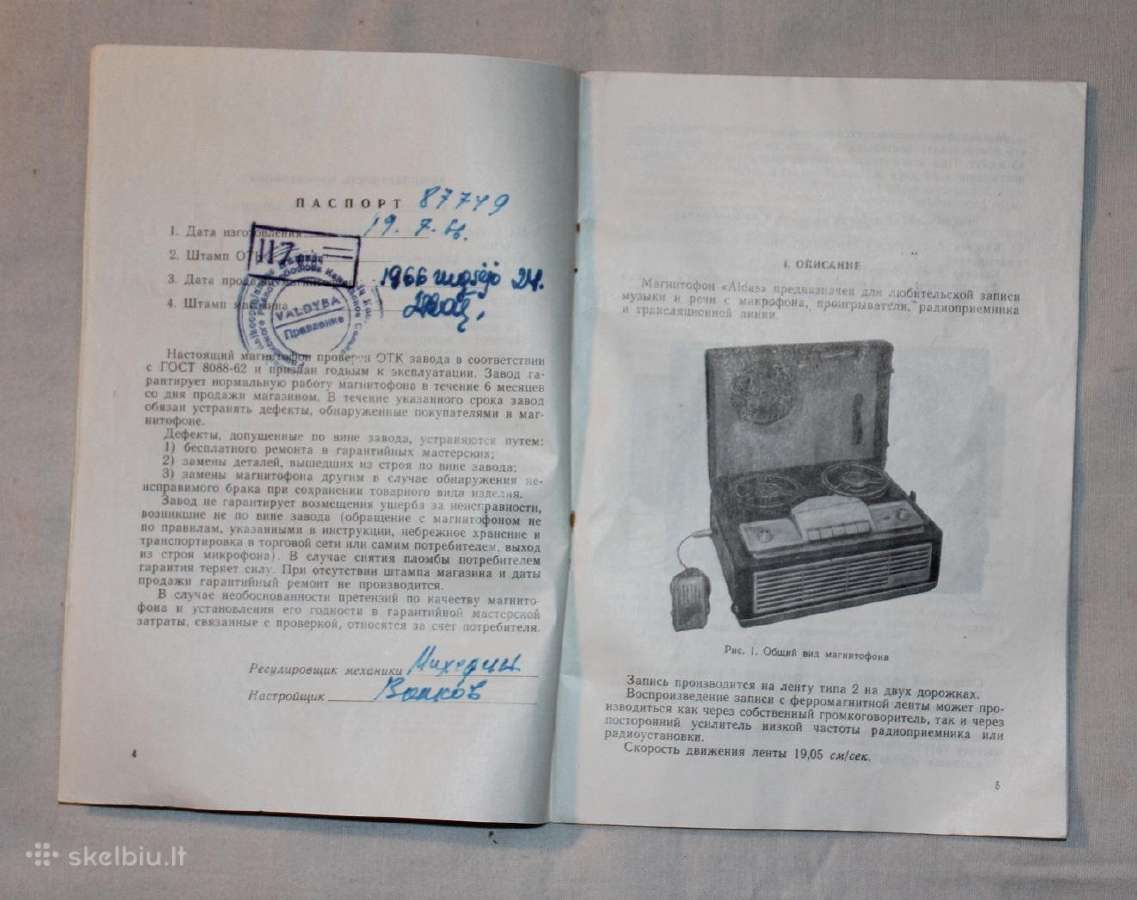 ПАСПОРТ 87749
1. Дата изготовления 19. 7. 66.
2. Штамп ОТК
117
3. Дата продажи 1966 24.
4. Штамп магазина
VALDYBA
Правление
Настоящий магнитофон проверен ОТК завода в соответствии
с ГОСТ 8088-62 и признан годным к эксплуатации. Завод га-
рантирует нормальную работу магнитофона в течение 6 месяцев
со дня продажи магазином. В течение указанного срока завод
обязан устранять дефекты, обнаруженные покупателями в маг-
нитофоне.
Дефекты, допущенные по вине завода, устраняются путем:
1) бесплатного ремонта в гарантийных мастерских;
2) замены деталей, вышедших из строя по вине завода;
3) замены магнитофона другим в случае обнаружения не-
исправимого брака при сохранении товарного вида изделия.
Завод не гарантирует возмещения ущерба за неисправности,
возникшие не по вине завода (обращение с магнитофоном не
по правилам, указанными в инструкции, небрежное хранение и
транспортировка в торговой сети или самим потребителем, выход
из строя микрофона). В случае снятия пломбы потребителем
гарантия теряет силу. При отсутствии штампа магазина и даты
продажи гарантийный ремонт не производится.
В случае необоснованности претензий по качеству магнито-
фона и установления его годности в гарантийной мастерской
затраты, связанные с проверкой, относятся за счет потребителя.
Регулировщик механики
Настройщик Волков
4
1. ОПИСАНИЕ
Магнитофон «Aidas» предназначен для любительской записи
музыки и речи с микрофона, проигрывателя, радиоприемника
и трансляционной линии.
Рис. 1. Общий вид магнитофона
Запись производится на ленту типа 2 на двух дорожках.
Воспроизведение записи с ферромагнитной ленты может про-
изводиться как через собственный громкоговоритель, так и через
посторонний усилитель низкой частоты радиоприемника или
радиоустановки.
Скорость движения ленты 19,05 см/сек.
5
skelbiu.lt